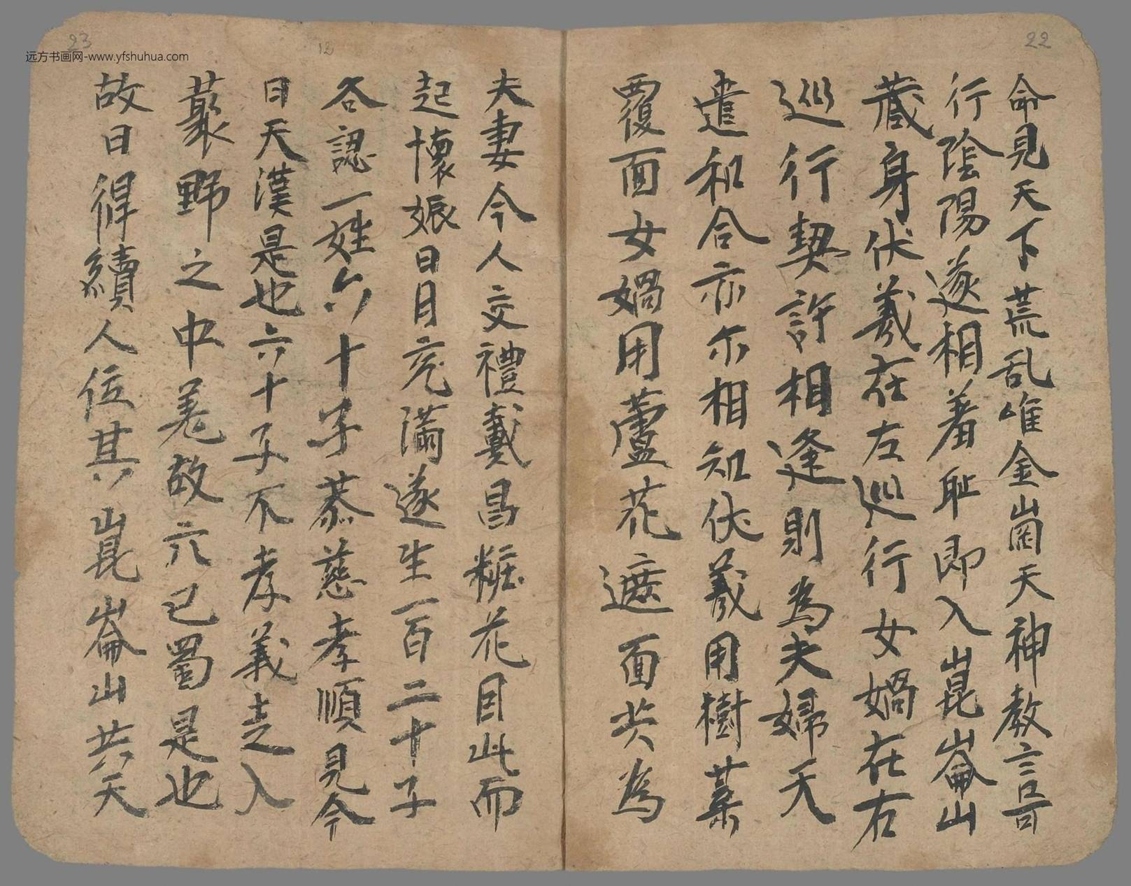 22
命見天下荒乱唯金崗天神教言可
行陰陽遂相羞耻即入崑崙山
藏身伏羲在左巡行女媧在右
巡行契許相逢則為夫婦天
遣和合亦尓相知伏羲用樹葉
覆面女媧用蘆花遮面共為
23
12
夫妻今人交禮戴昌粧花目此而
起懷娠日月充滿遂生一百二十子
各認一姓六十子恭慈孝順見今
日天漢是也六十子不孝義走入
藂野之中羌故六巴蜀是也
故曰得續人位其崑崙山共天
远方书画网-www.yfshuhua.com